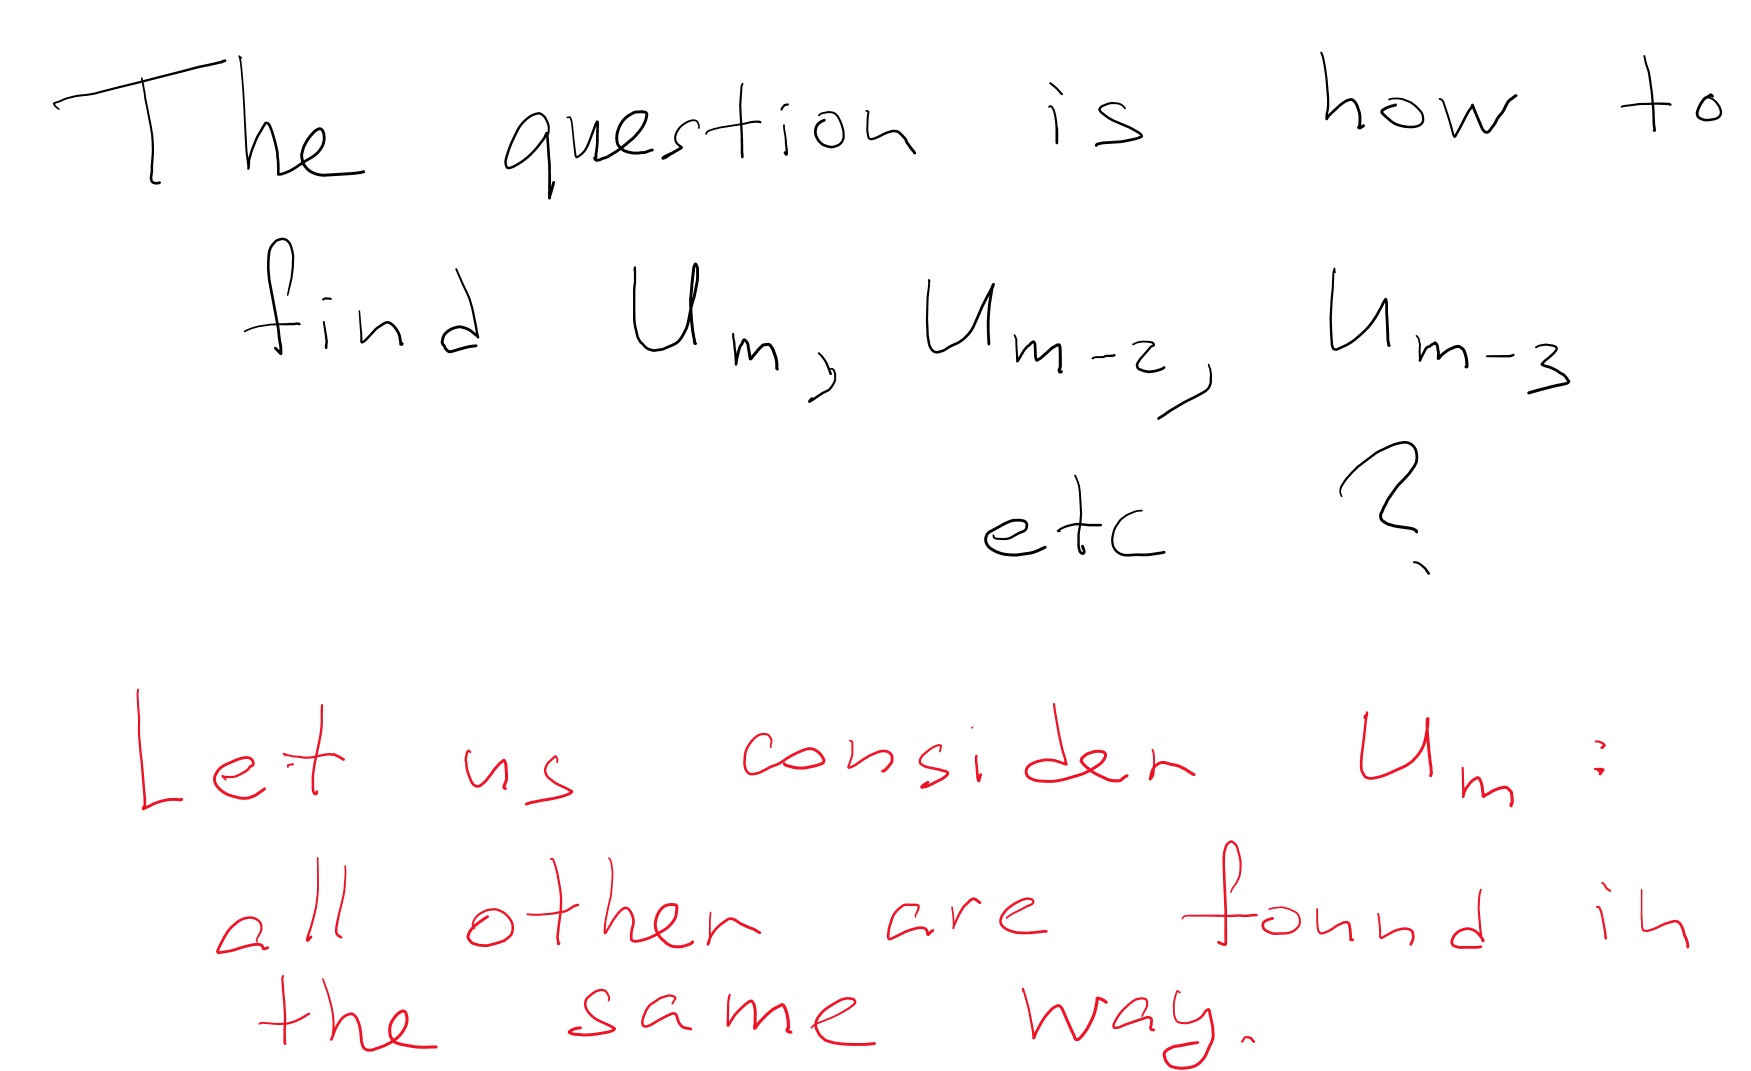 The question is how to
find Um, Um-2, Um-3
etc ?
Let us consider Um :
all other are found in
the same way.